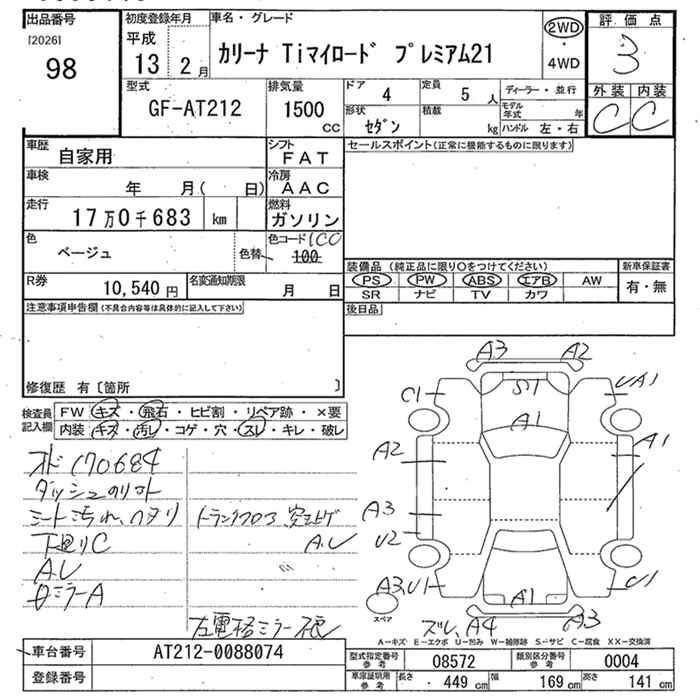 出品番号
[2026]
98
初度登録年月
平成
13 2月
車名・グレード
カリーナ Tiマイロード プレミアム21
2WD
・
4WD
評価点
3
外装 内装
C C
型式
GF-AT212
排気量
1500
cc
ドア 4
定員 5人
形状
セダン
積載
kg
ディーラー・並行
モデル年式 年
ハンドル 左・右
車歴
自家用
シフト
FAT
車検
年 月( 日)
冷房
AAC
走行
17万0千683 km
燃料
ガソリン
色
ベージュ
色替
色コード 1C0
100
R券
10,540円
名変通知期限
月 日
セールスポイント(正常に機能するものに限ります)
装備品 (純正品に限り○をつけてください)
新車保証書
PS PW ABS エアB AW
SR ナビ TV カワ
有・無
後日品
注意事項申告欄(不具合内容等は具体的に記入して下さい)
修復歴 有〔箇所 〕
検査員記入欄
FW キズ・飛石・ヒビ割・リペア跡・×要
内装 キズ・汚レ・コゲ・穴・スレ・キレ・破レ
オド170684
ダッシュのリカト
シート汚れ、ヘタリ
トランクフロア 突上げ
下廻りC
A.U
A.U
〃
Dミラー A
左電格ミラー不良
A3 A2
C1 S1 UA1
A1
A2 A1
A3
U2
A3、U1 A1 U1
スペア
ズレ、A4 A3
A-キズ E-エクボ U-凹み W-補修跡 S-サビ C-腐食 XX-交換済
車台番号
AT212-0088074
登録番号
型式指定番号
参考
08572
類別区分番号
参考
0004
車庫証明用
参考
長さ 449cm
幅 169cm
高さ 141cm